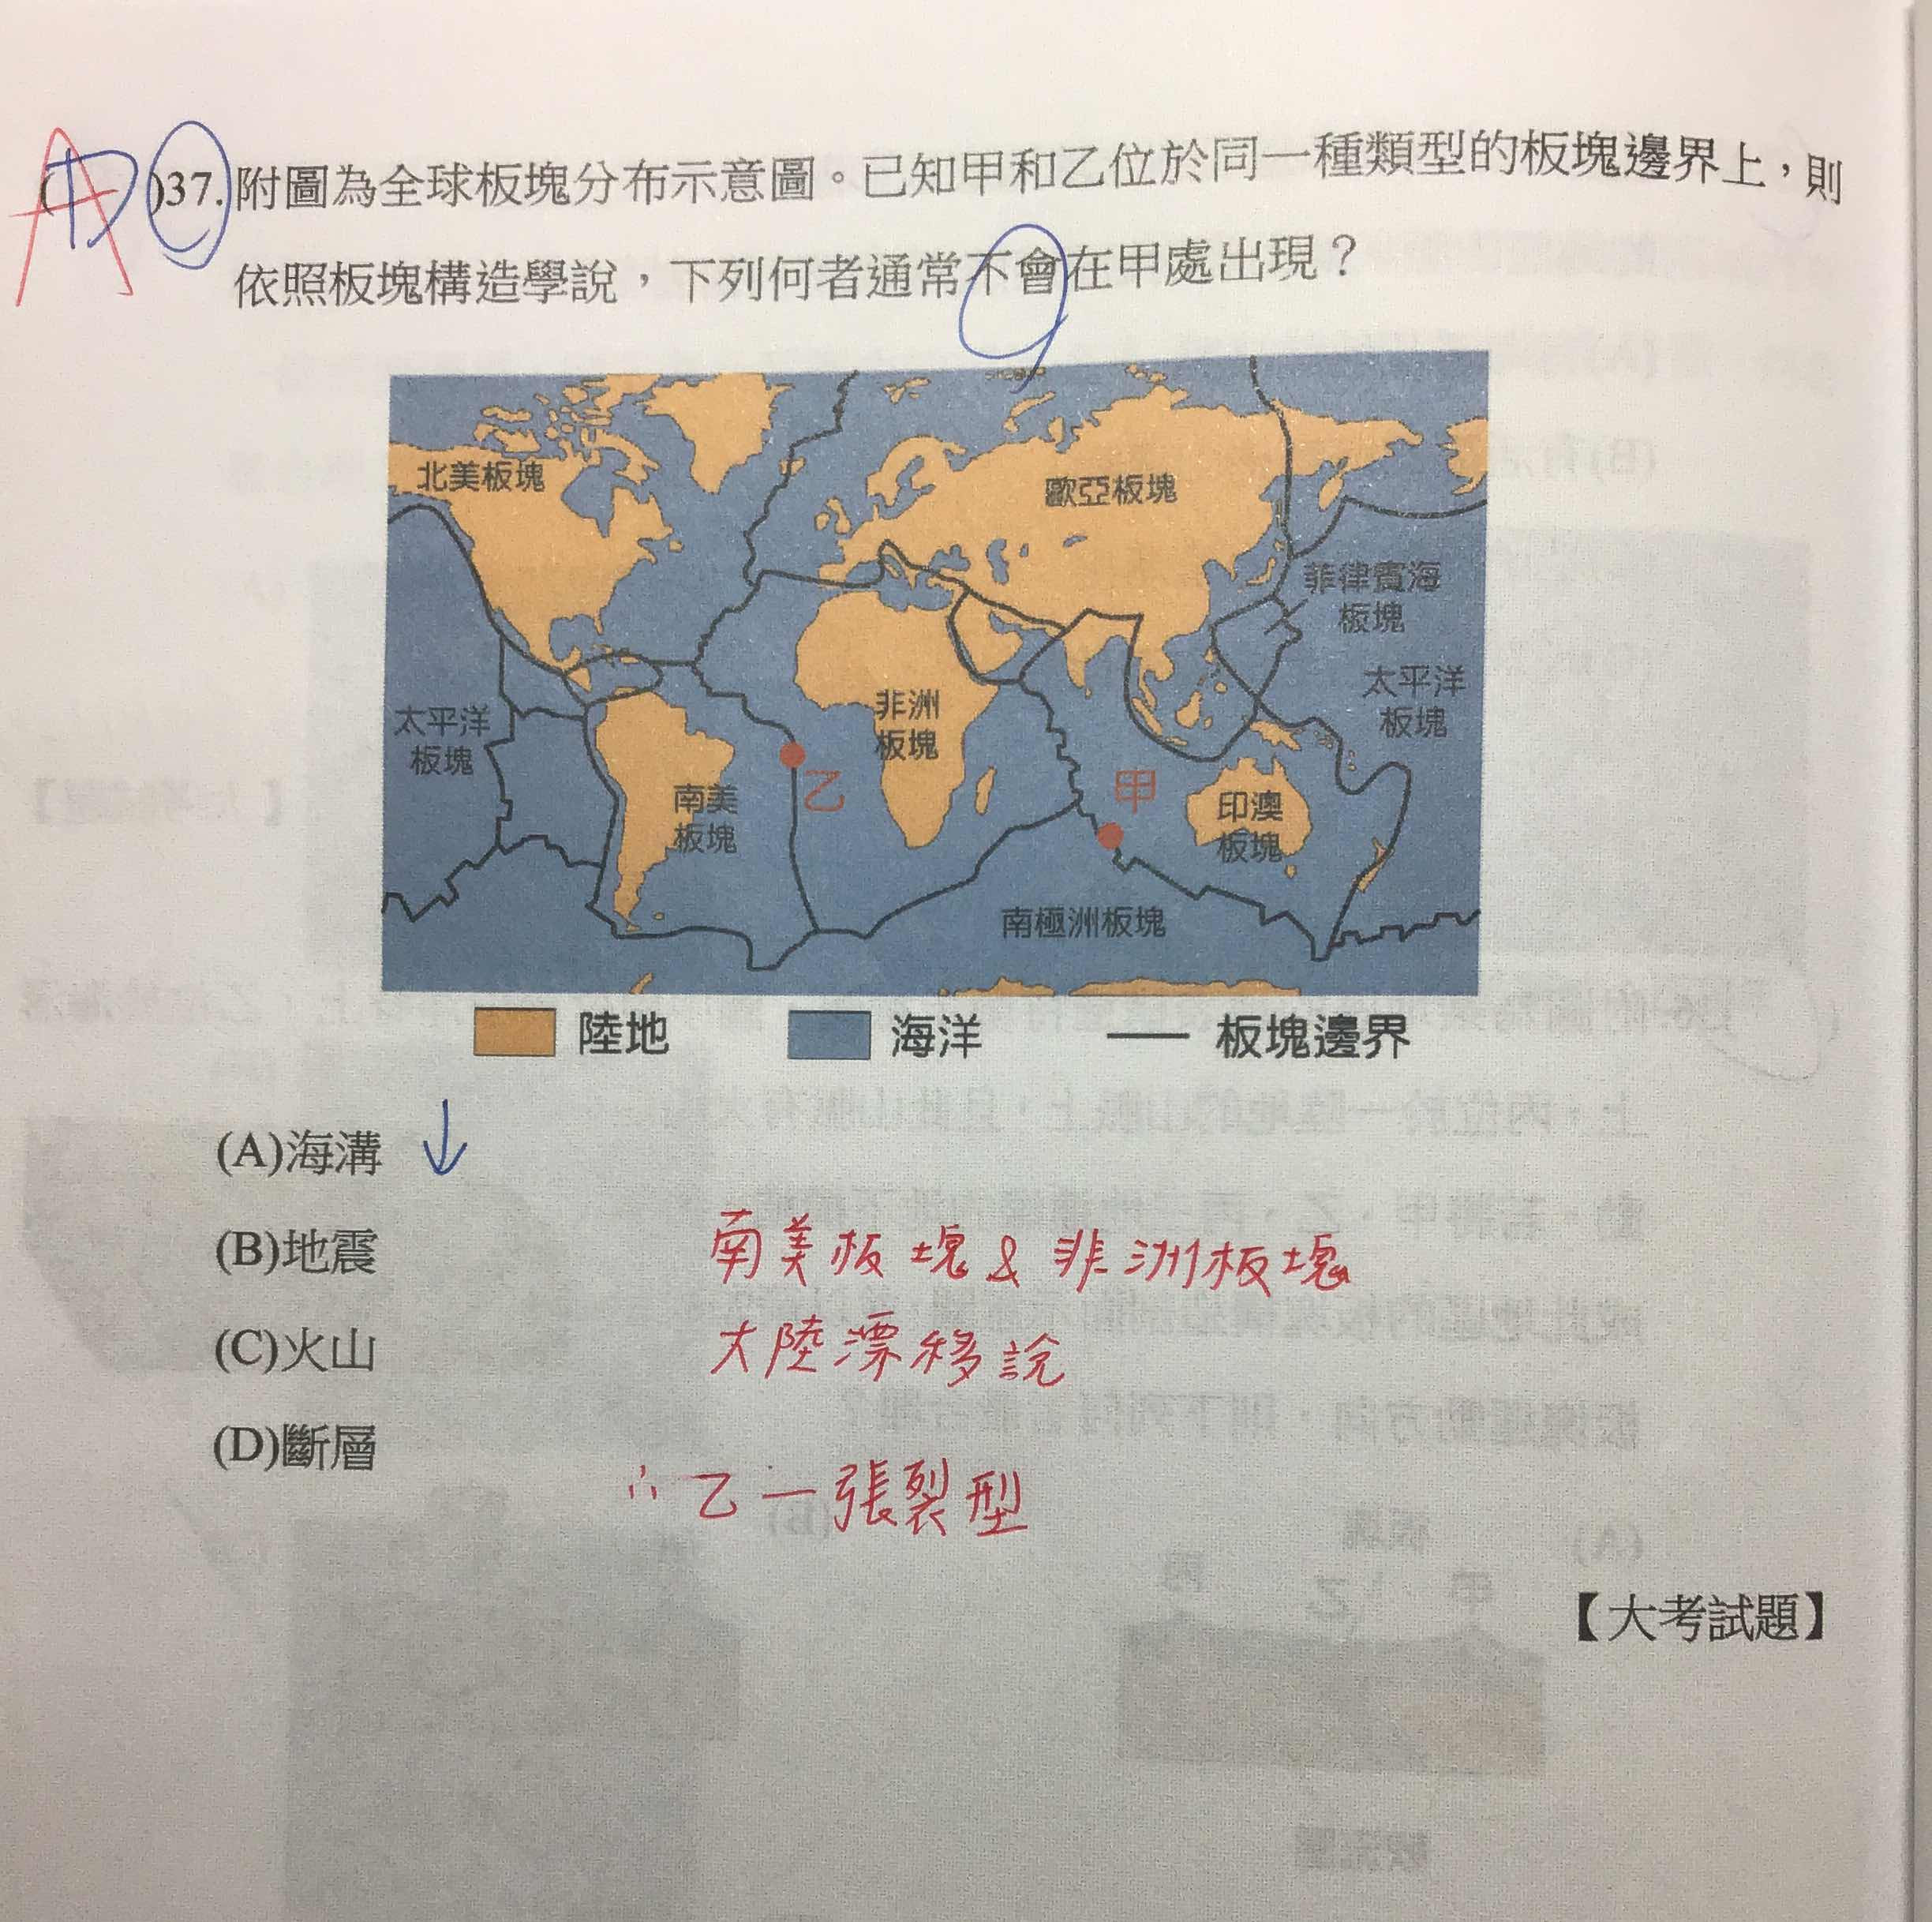 (D)37.附圖為全球板塊分布示意圖。已知甲和乙位於同一種類型的板塊邊界上，則
A
依照板塊構造學說，下列何者通常不會在甲處出現？
北美板塊
歐亞板塊
菲律賓海
板塊
太平洋
板塊
非洲
板塊
太平洋
板塊
乙
甲
南美
板塊
印澳
板塊
南極洲板塊
陸地 海洋 板塊邊界
(A)海溝
(B)地震
南美板塊&非洲板塊
(C)火山
大陸漂移說
(D)斷層
∴乙—張裂型
【大考試題】